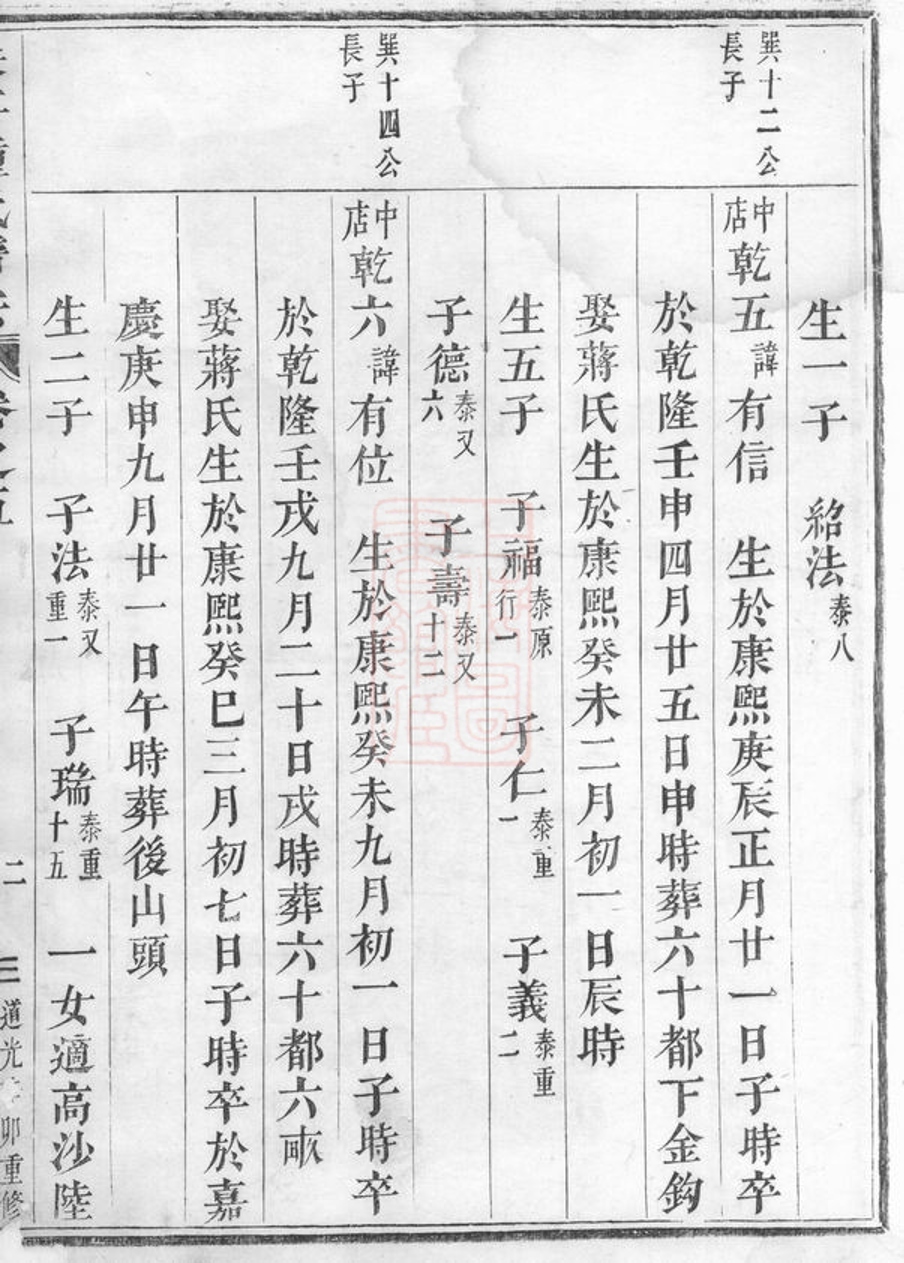 生一子　紹法泰八
巽十二公長子
中店乾五諱有信　生於康熙庚辰正月廿一日子時卒
於乾隆壬申四月廿五日申時葬六十都下金鈎
娶蔣氏生於康熙癸未二月初一日辰時
生五子　子福泰原行一　子仁泰重一　子義泰重二
子德泰又六　子壽泰又十二
巽十四公長子
中店乾六諱有位　生於康熙癸未九月初一日子時卒
於乾隆壬戌九月二十日戌時葬六十都六畝
娶蔣氏生於康熙癸巳三月初七日子時卒於嘉
慶庚申九月廿一日午時葬後山頭
生二子　子法泰又重一　子瑞泰重十五　一女適高沙陸
卷之五
二
三
道光 卯重修